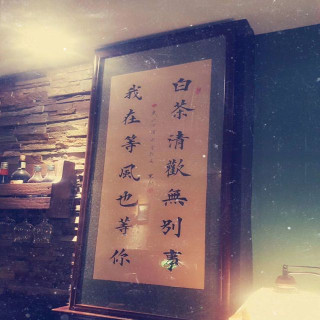 白茶清歡無別事
我在等風也等你